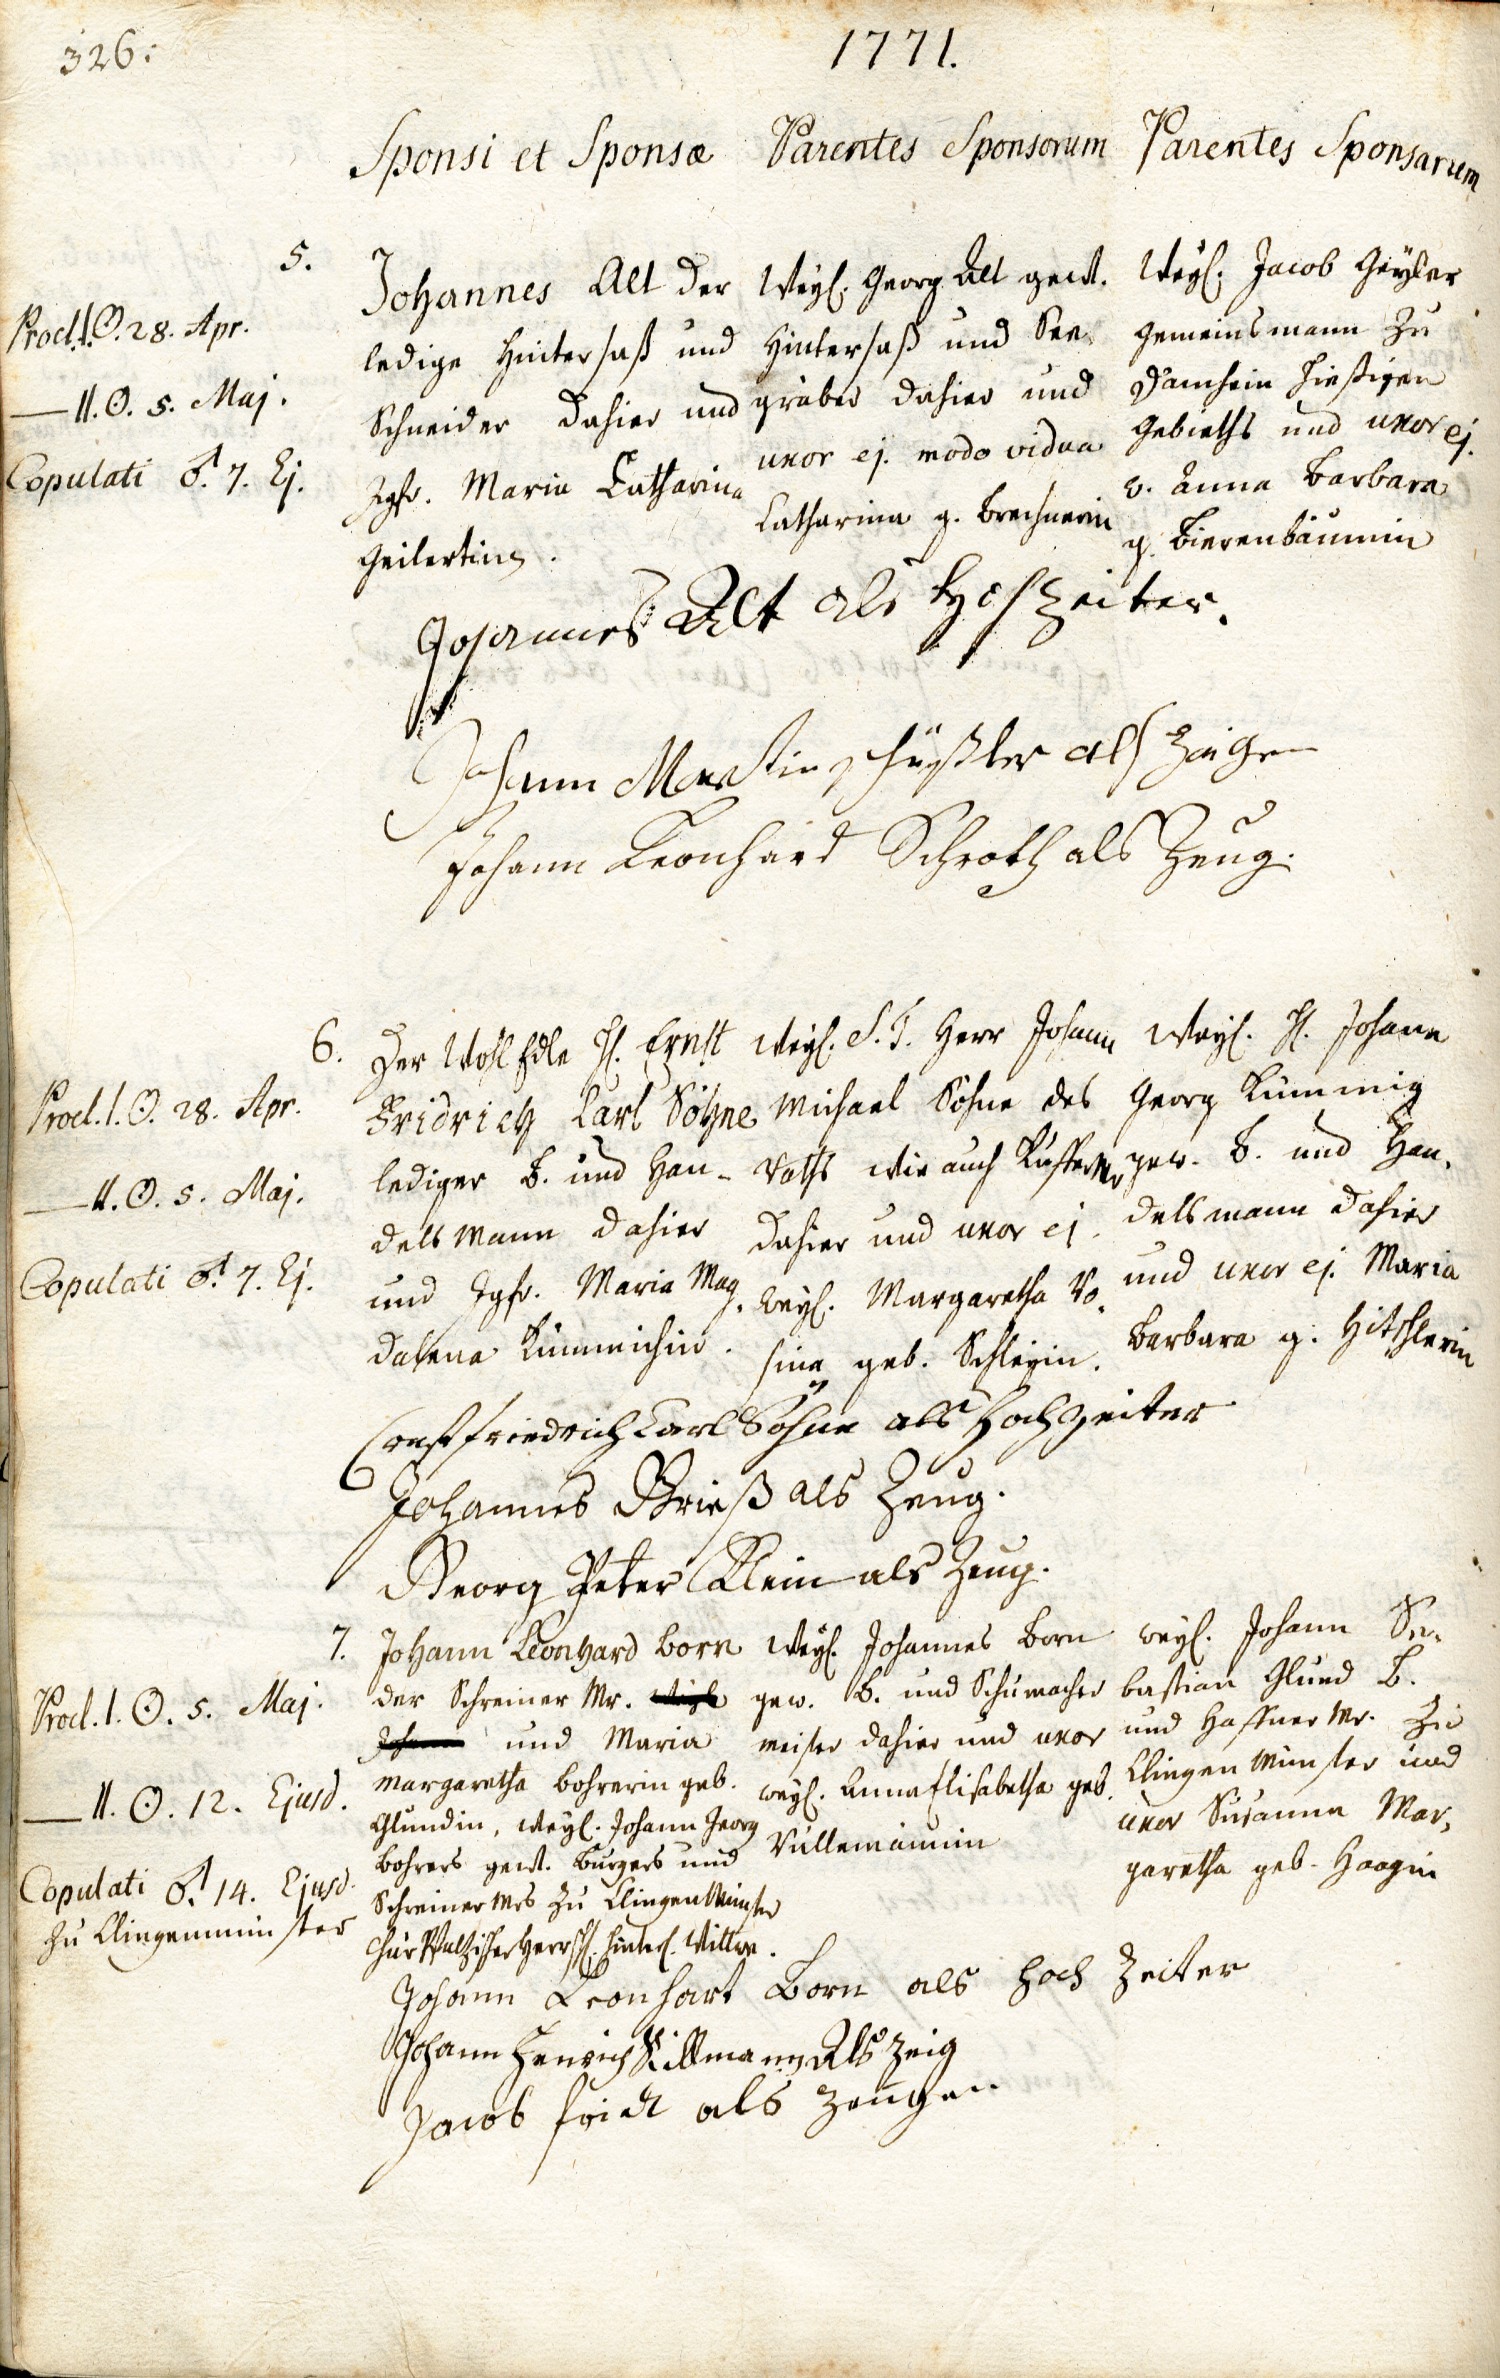 326.
1771.
Sponsi et Sponsæ
Parentes Sponsorum
Parentes Sponsarum
5.
Procl. I. ☉. 28. Apr.
— II. ☉. 5. Maj.
Copulati ♂. 7. Ej.
Johannes Alt der
ledige Hintersaß und
Schneider dahier und
Jgfr. Maria Catharina
Geilertin.
Weyl. Georg Alt gewt.
Hintersaß und
gräber dahier und
uxor ej. modo vidua
Catharina g. Brechnerin
Weyl. Jacob Geyler
Gemeinsmann zu
Damheim hießigen
Gebieths und uxor ej.
v. Anna Barbara
g. Bierenbäumin
Johannes Alt als Hochzeiter.
Johann Martin als Zeigen
Johann Leonhard Schroth als Zeug.
6.
Procl. I. ☉. 28. Apr.
— II. ☉. 5. Maj.
Copulati ♂. 7. Ej.
Der Wohl Edle H. Ernst
Fridrich Carl Söhne
lediger B. und Han-
dels Mann dahier
und Jgfr. Maria Mag-
dalena Kümmichin.
Weyl. S. T. Herr Johann
Michael Söhne des
Raths wie auch
dahier und uxor ej.
weyl. Margaretha Ro-
sina geb. Schleyin.
Weyl. H. Johann
Georg Kümmig
gew. B. und Han-
delsmann dahier
und uxor ej. Maria
Barbara g. Hitschlerin
Ernst Friedrich Carl Söhne als Hochzeiter
Johannes Brieß als Zeug.
Georg Peter Klein als Zeug.
7.
Procl. I. ☉. 5. Maj.
— II. ☉. 12. Ejusd.
Copulati ♂. 14. Ejusd.
zu Clingenmünster
Johann Leonhard Born
der Schreiner Mr.
und Maria
Margaretha Bohrerin geb.
Glundin, weyl. Johann Georg
Bohrers gewt. Burgers und
Schreiner Mrs zu Clingen Münster
Chur Pfaltzischer Herrsch. hinterl. Wittwe.
Weyl. Johannes Born
gew. B. und Schumacher
meister dahier und uxor
weyl. Anna Elisabetha geb.
Vullemännin
weyl. Johann Se-
bastian Glund B.
und Haffner Mr. zu
Clingen Münster und
uxor Susanna Mar-
garetha geb. Haagin
Johann Leonhart Born als Hoch Zeiter
Johann Henrich Killmann Als Zeig
Jacob als Zeugen